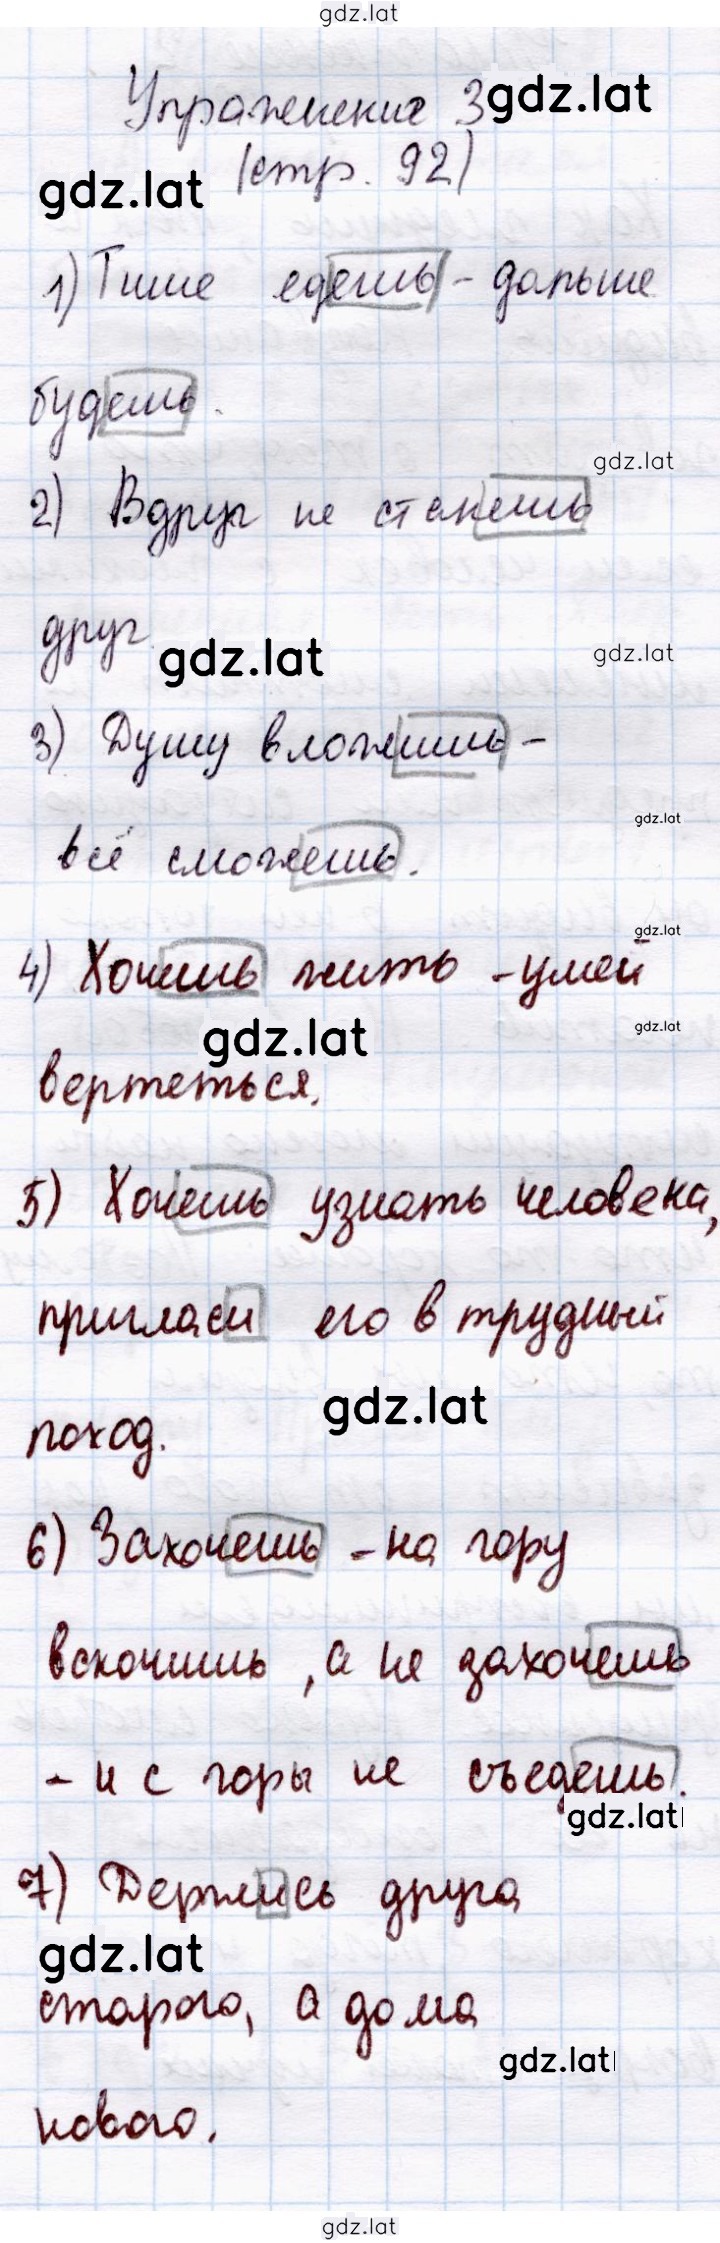 gdz.lat
Упражнение 3 gdz.lat
gdz.lat (стр. 92)
1) Тише едешь - дальше
будешь.
gdz.lat
2) Вдруг не станешь
друг gdz.lat gdz.lat
3) Душу вложишь -
gdz.lat
всё сможешь.
gdz.lat
4) Хочешь жить - умей
gdz.lat gdz.lat
вертеться.
5) Хочешь узнать человека,
пригласи его в трудный
gdz.lat
поход.
6) Захочешь - на гору
вскочишь, а не захочешь
- и с горы не съедешь.
gdz.lat
7) Держись друга
gdz.lat
старого, а дома
gdz.lat
нового.
gdz.lat